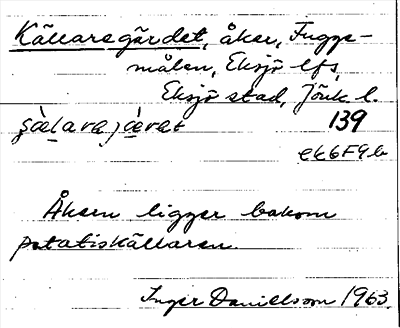 Källaregärdet, åker, Fugge-
målen, Eksjö lfs,
Eksjö stad, Jönk. l.
139
ek6F9b
Åkern ligger bakom
potatiskällaren.
Inger Danielsson 1963.